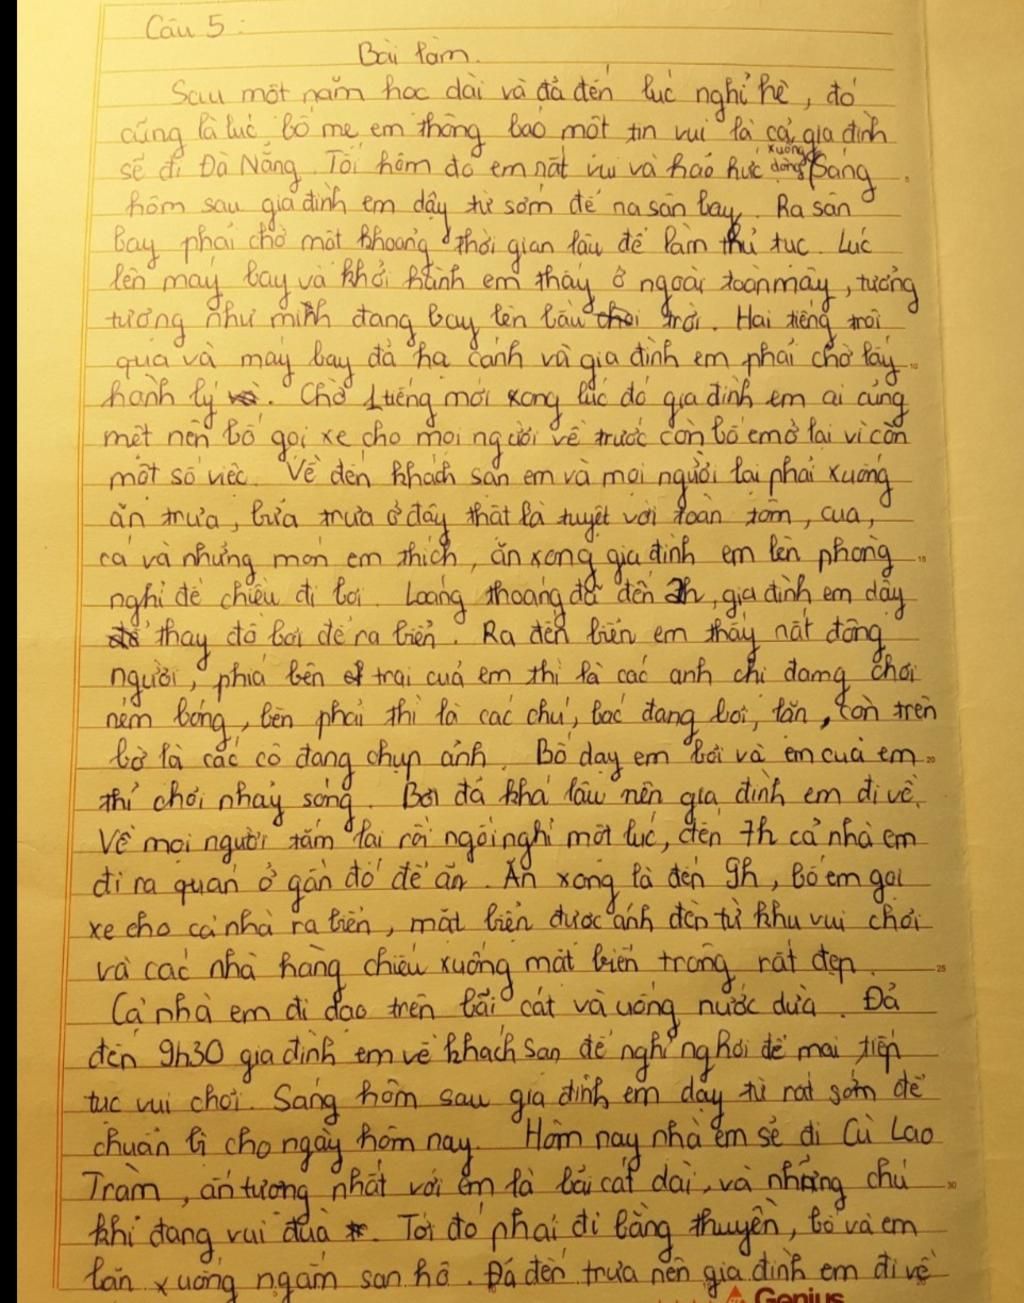 Câu 5:
Bài làm.
Sau một năm học dài và đã đến lúc nghỉ hè, đó
cũng là lúc bố mẹ em thông báo một tin vui là cả gia đình
sẽ đi Đà Nẵng. Tối hôm đó em rất vui và háo hức xuống dòng Sáng
hôm sau gia đình em dậy từ sớm để na sân bay. Ra sân
bay phải chờ một khoảng thời gian lâu để làm thủ tục. Lúc
lên máy bay và khởi hành em thấy ở ngoài toàn mây, tưởng
tượng như mình đang bay lên bầu trời. Hai tiếng trôi
qua và máy bay đã hạ cánh và gia đình em phải chờ lấy
hành lý. Chờ 1 tiếng mới xong lúc đó gia đình em ai cũng
mệt nên bố gọi xe cho mọi người về trước còn bố em ở lại vì còn
một số việc. Về đến khách sạn em và mọi người lại phải xuống
ăn trưa, bữa trưa ở đây thật là tuyệt vời toàn tôm, cua,
cá và những món em thích, ăn xong gia đình em lên phòng
nghỉ để chiều đi bơi. Loáng thoáng đã đến 2h, gia đình em dậy
thay đồ bơi để ra biển. Ra đến biển em thấy nất đông
người, phía bên trái của em thì là các anh chị đang chơi
ném bóng, bên phải thì là các chú, bác đang bơi, lặn, còn trên
bờ là các cô đang chụp ảnh. Bố dạy em bơi và em của em
thì chơi nhảy sóng. Bơi đã khá lâu nên gia đình em đi về.
Về mọi người tắm lại rồi ngồi nghỉ một lúc, đến 7h cả nhà em
đi ra quán ở gần đó để ăn. Ăn xong là đến 9h, bố em gọi
xe cho cả nhà ra biển, mặt biển được ánh đèn từ khu vui chơi
và các nhà hàng chiếu xuống mặt biển trông rất đẹp.
Cả nhà em đi dạo trên bãi cát và uống nước dừa. Đã
đến 9h30 gia đình em về khách sạn để nghỉ nghơi để mai tiếp
tục vui chơi. Sáng hôm sau gia đình em dậy từ rất sớm để
chuẩn bị cho ngày hôm nay. Hôm nay nhà em sẽ đi Cù Lao
Tràm, ấn tượng nhất với em là bãi cát dài, và những chú
khỉ đang vui đùa. Tới đó phải đi bằng thuyền, bố và em
lặn xuống ngắm san hô. Đã đến trưa nên gia đình em đi về
Genius